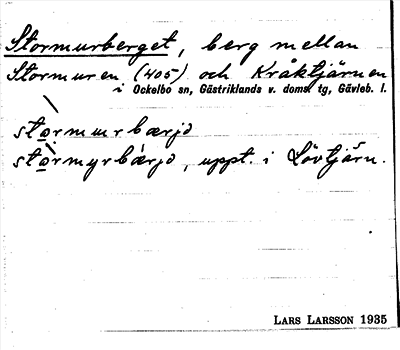 Stormurberget, berg mellan
Stormuren (405) och Kråktjärnen
i Ockelbo sn, Gästriklands v. doms. tg, Gävleb. l.
stormurbærjə
stormyrbærjə, uppt. i Lövtjärn.
LARS LARSSON 1935